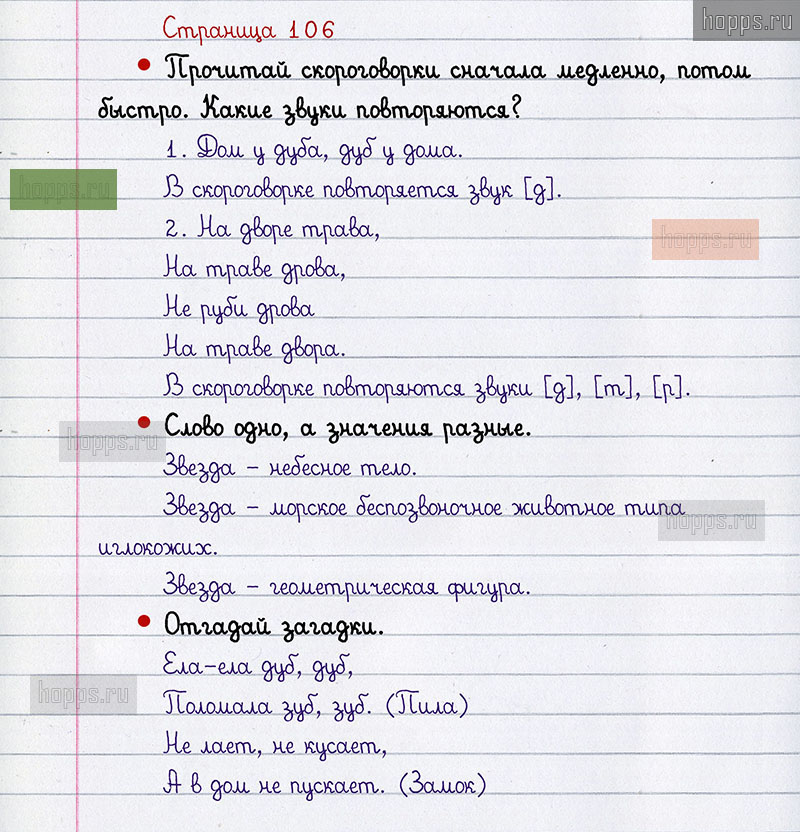 hopps.ru
Страница 106
• Прочитай скороговорки сначала медленно, потом
быстро. Какие звуки повторяются?
1. Дом у дуба, дуб у дома.
В скороговорке повторяется звук [д].
hopps.ru
2. На дворе трава,
hopps.ru
На траве дрова,
Не руби дрова
На траве двора.
В скороговорке повторяются звуки [д], [т], [р].
• Слово одно, а значения разные.
hopps.ru
Звезда – небесное тело.
Звезда – морское беспозвоночное животное типа
hopps.ru
иглокожих.
Звезда – геометрическая фигура.
• Отгадай загадки.
Ела-ела дуб, дуб,
hopps.ru
Поломала зуб, зуб. (Пила)
Не лает, не кусает,
А в дом не пускает. (Замок)